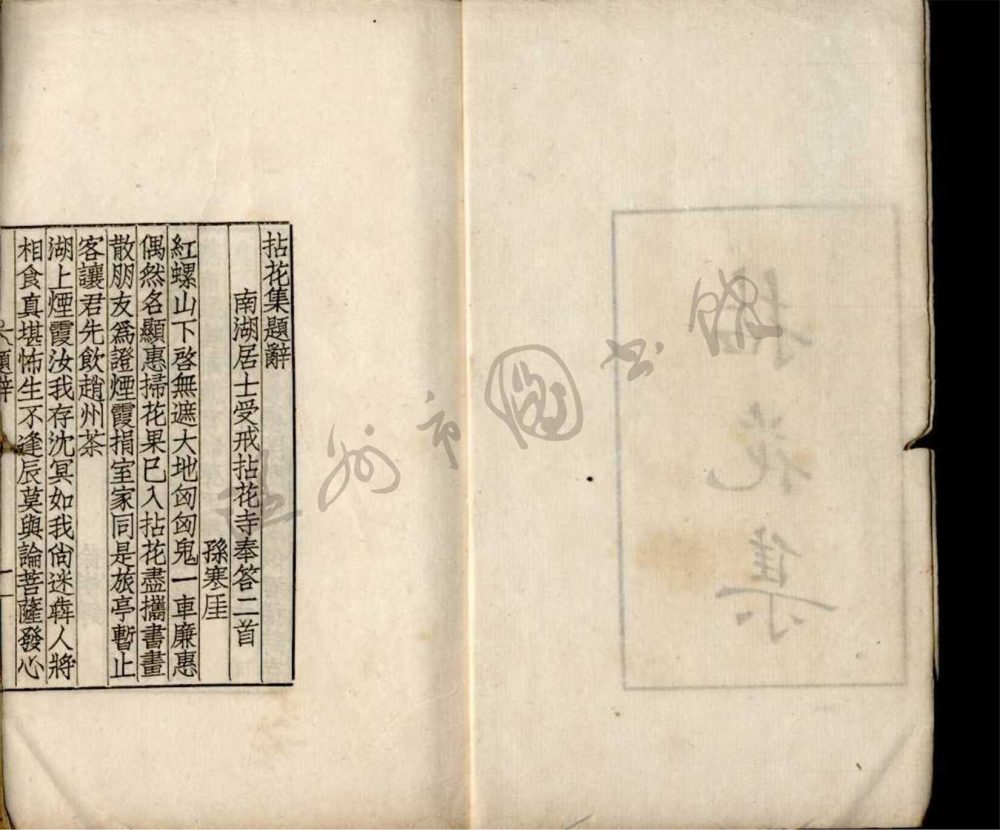 拈花集
拈花集題辭
南湖居士受戒拈花寺奉答二首
孫寒厓
紅螺山下啓無遮大地匈匈鬼一車廉惠
偶然名顯惠掃花果已入拈花盡攜書畫
散朋友爲證煙霞捐室家同是旅亭暫止
客讓君先飲趙州茶
湖上煙霞汝我存沈冥如我尙迷犇人將
相食真堪怖生不逢辰莫與論菩薩發心
題辭
一
蘇州市圖書館